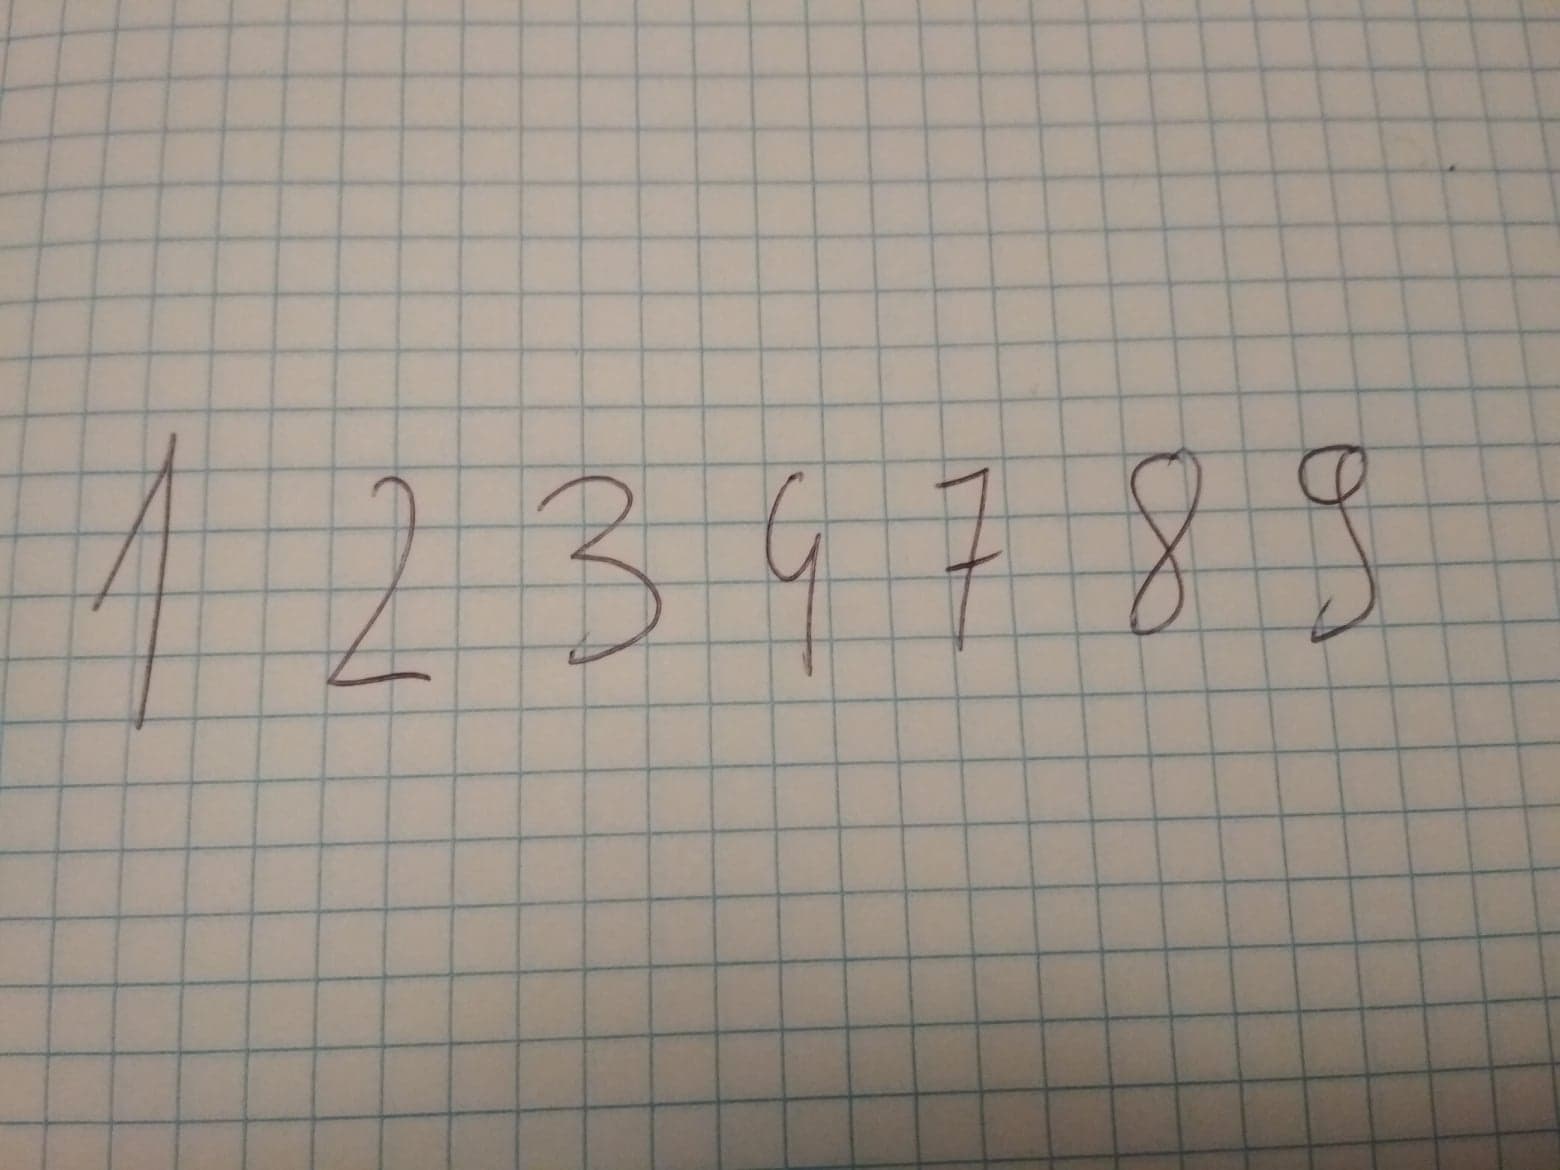 1 2 3 4 7 8 9